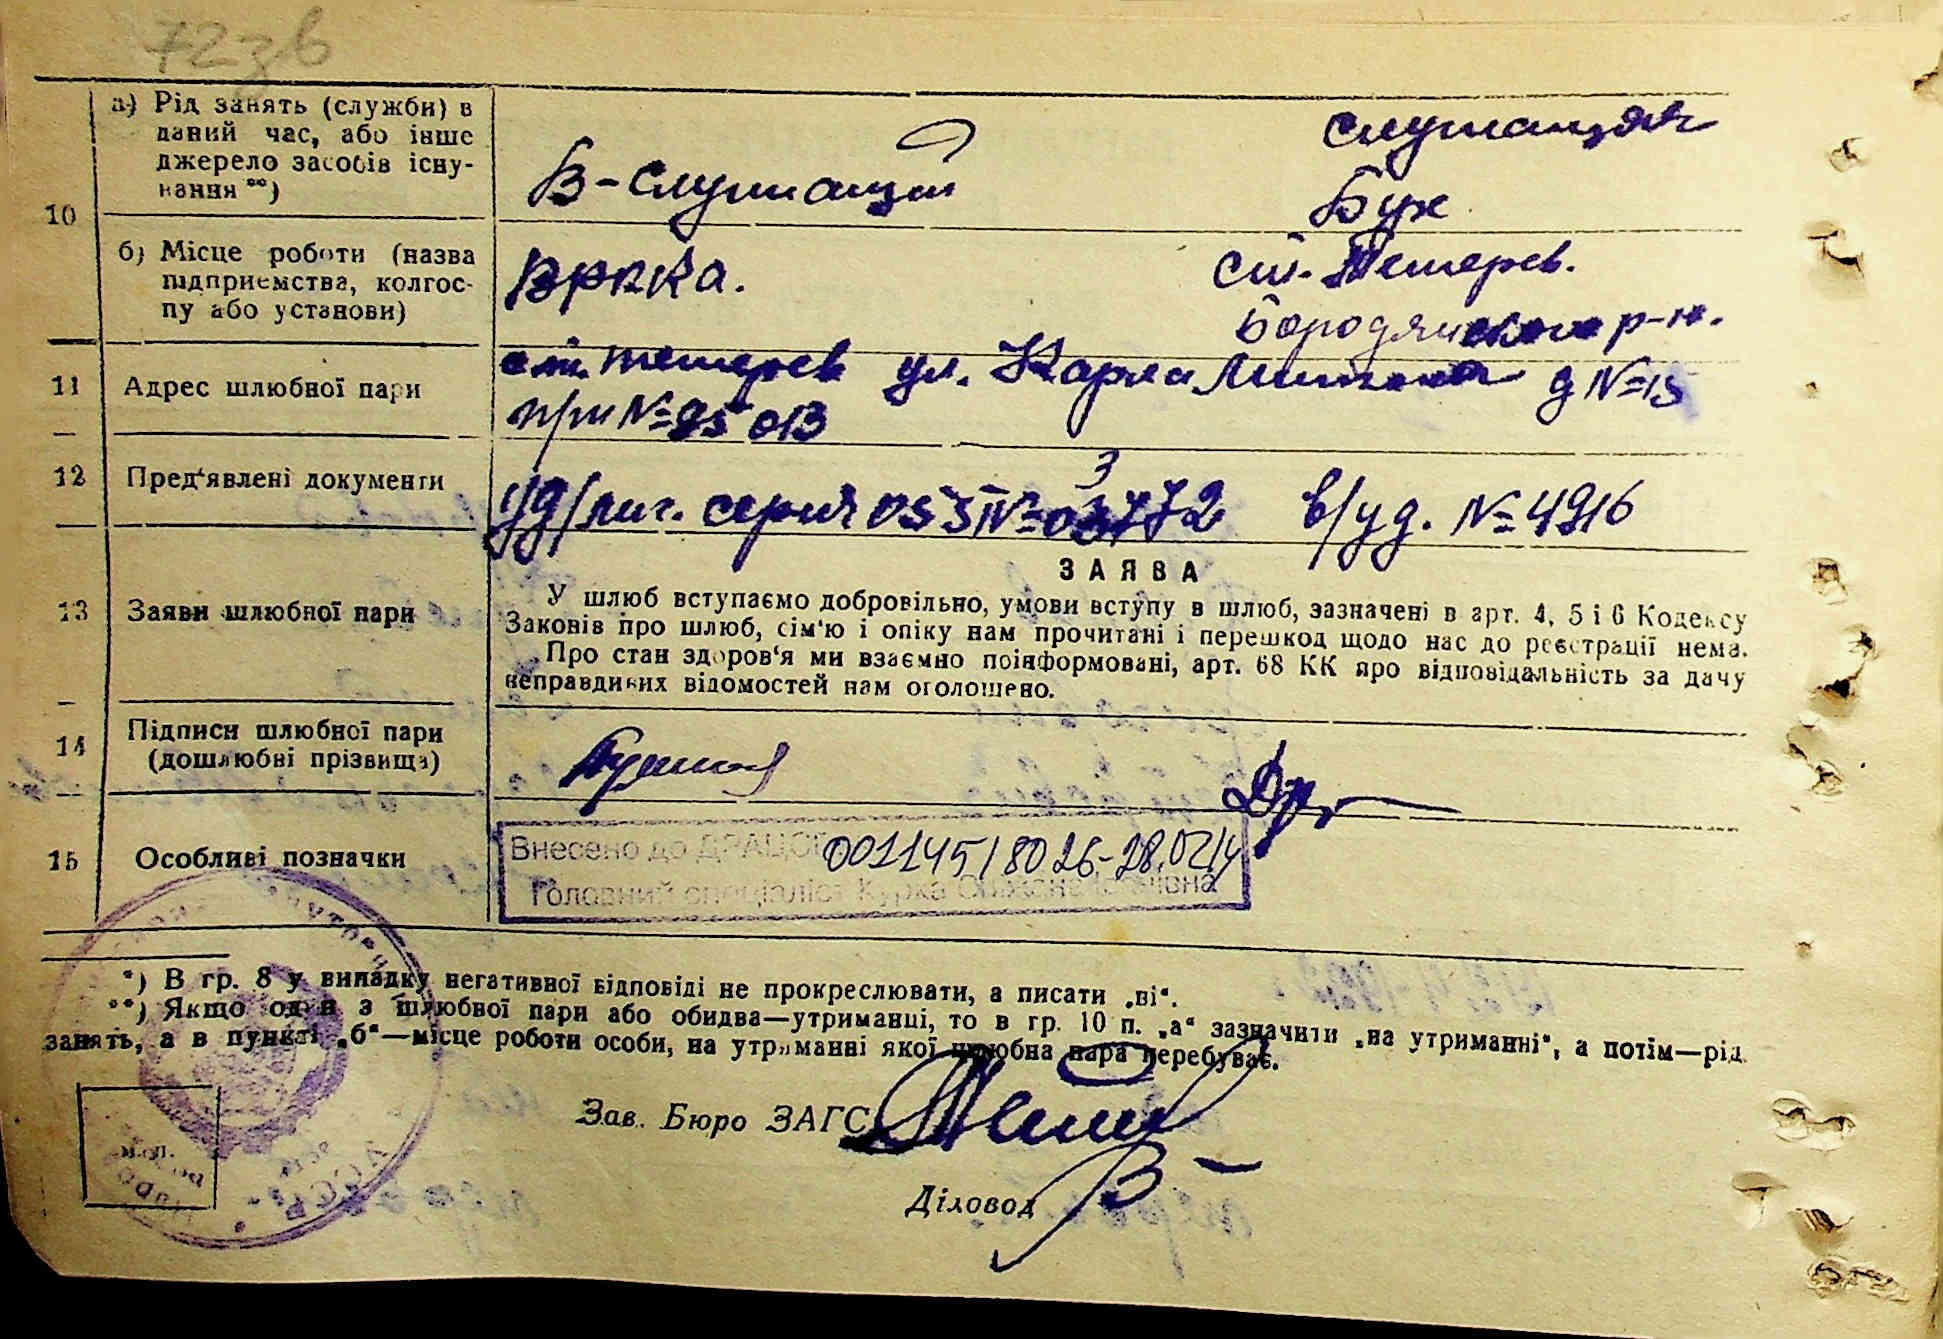 72зв
10
а) Рід занять (служби) в
даний час, або інше
джерело засобів існу-
вання **)
В-служащий
служащая
Бух
б) Місце роботи (назва
підприємства, колгос-
пу або установи)
ВРККА.
ст. Тетерев.
Бородянского р-на.
11 Адрес шлюбної пари
ст. Тетерев ул. Карла д №15
№ 95
12 Пред'явлені документи
уд/лич. серия 3 в/уд. № 4916
ЗАЯВА
13 Заяви шлюбної пари
У шлюб вступаємо добровільно, умови вступу в шлюб, зазначені в арт. 4, 5 і 6 Кодексу
Законів про шлюб, сім'ю і опіку нам прочитані і перешкод щодо нас до реєстрації нема.
Про стан здоров'я ми взаємно поінформовані, арт. 68 КК про відповідальність за дачу
неправдивих відомостей нам оголошено.
14 Підписи шлюбної пари
(дошлюбні прізвища)
15 Особливі позначки
Внесено до ДРАЦСГ 00114518026-28.02.14
Головний спеціаліст Курка
*) В гр. 8 у випадку негативної відповіді не прокреслювати, а писати „ні“.
**) Якщо один з шлюбної пари або обидва—утриманці, то в гр. 10 п. „а“ зазначити „на утриманні“, а потім—рід
занять, а в пункті „б“—місце роботи особи, на утриманні якої шлюбна пара перебуває.
Зав. Бюро ЗАГС
м.п.
Діловод